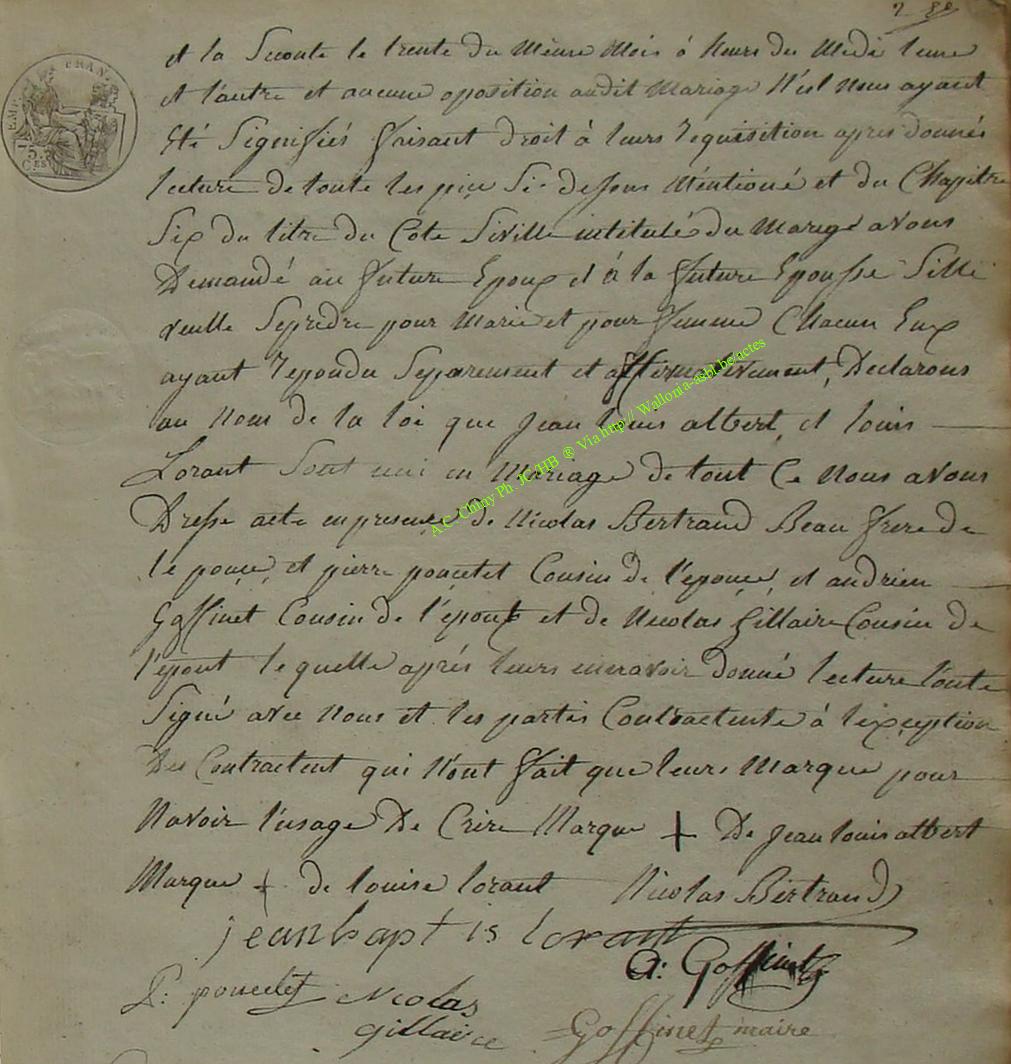 et la Seconte le trente du Même Mois à heurs du Midi l'une
et l'autre et aucune oposition audit Mariage N'est Nous ayant
Eté Signifiés faisant droit à leurs requisition apres donnés
lecture de toute les pies Si-dessous Mentioné et du Chapitre
Six du titre du Cote Siville intitulé du Marige avons
Demandé au future Epoux et à la future Epousse Sille
veulle Sepredre pour Marie et pour femme Chacun Eux
ayant repondu Separement et affirmativement, Declarons
au Nom de la loi que Jean louis albert, et louis
Lorant Sont uni en Mariage de tout Ce Nous avons
Dresse acte en presence de Nicolas Bertrand Beau frere de
le pouce, et pierre poncelet Cousin de l'epouce, et andrien
Goffinet Cousin de l'epoux et de Nicolas Gillaire Cousin de
l'epout le quelle aprés leurs enavoir donné lecture l'onte
Signé avec Nous et les partis Contractente à l'exception
Des Contractent qui N'ont fait que leurs Marque pour
Navoir l'usage De Crire Marque + De Jean louis albert
Marque + de louise lorant Nicolas Bertrand
jeanbaptis lorant
a: Goffinet
P: poncelet Nicolas gillaire
Goffinet maire
EMP. FRAN.
A.C. Chiny Ph. JC/HB ® Via http// Wallonia-asbl.be/actes